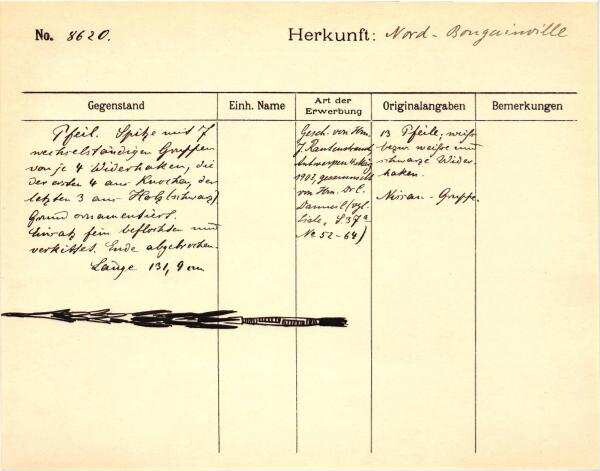 No. 8620.
Herkunft: Nord-Bougainville
Gegenstand
Einh. Name
Art der Erwerbung
Originalangaben
Bemerkungen
Pfeil. Spitze mit 7
wechselständigen Gruppen
von je 4 Widerhaken, die
der ersten 4 aus Knochen, der
letzten 3 aus Holz (schwarz)
Grund ornamentiert.
Einsatz fein beflochten und
verkittet. Ende abgebrochen.
Länge 131,9 cm
Gesch. von Hrn.
J. Rautenstrauch,
Antwerpen
1903, gesammelt
von Hrn. Dr. E.
(vgl.
Liste, S 37a
No 52-64)
13 Pfeile, weiße
bezw. weiße und
schwarze Wider-
haken.
Nissan-Gruppe.